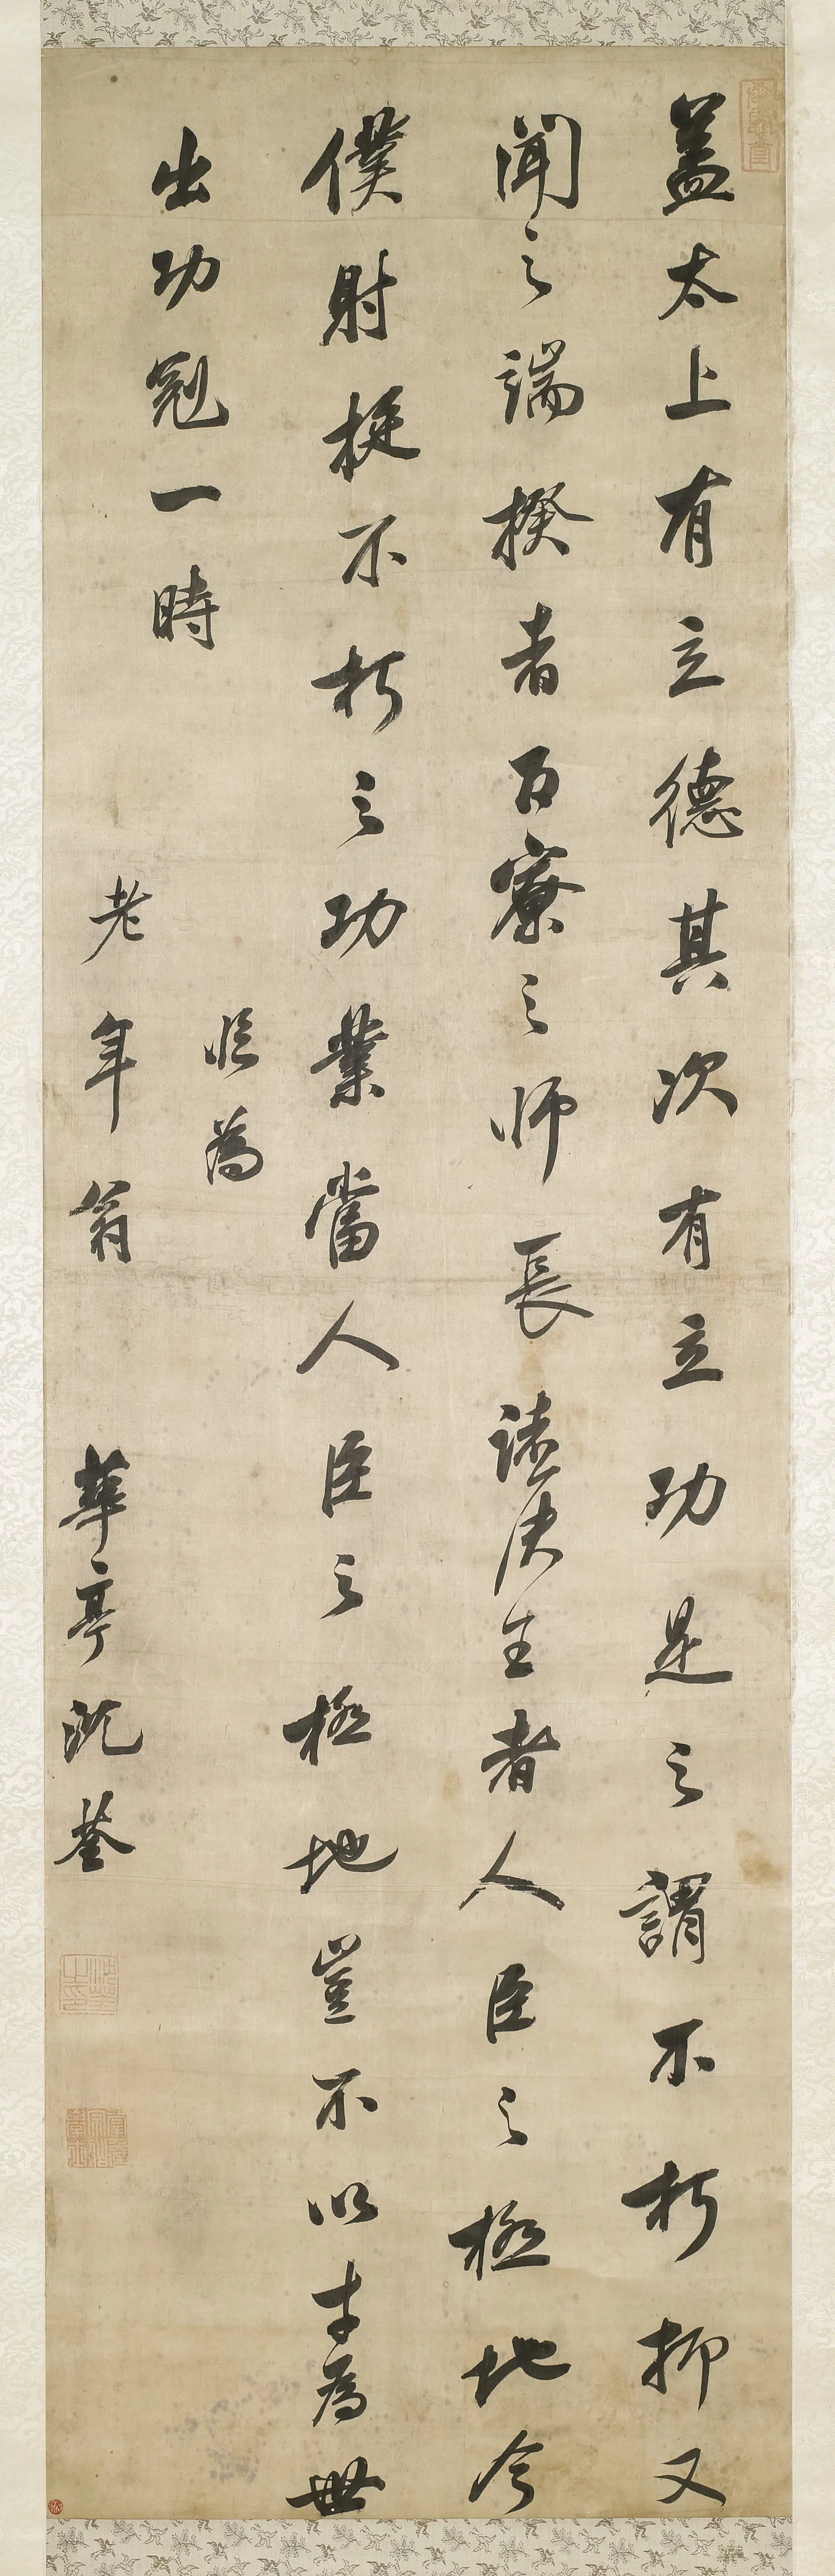 盖太上有立德其次有立功是之謂不朽抑又
聞之端揆者百寮之師長諸侯王者人臣之極地今
僕射挺不朽之功業當人臣之極地豈不以才為世
出功冠一時
臨為
老年翁 華亭沈荃
沈荃之印